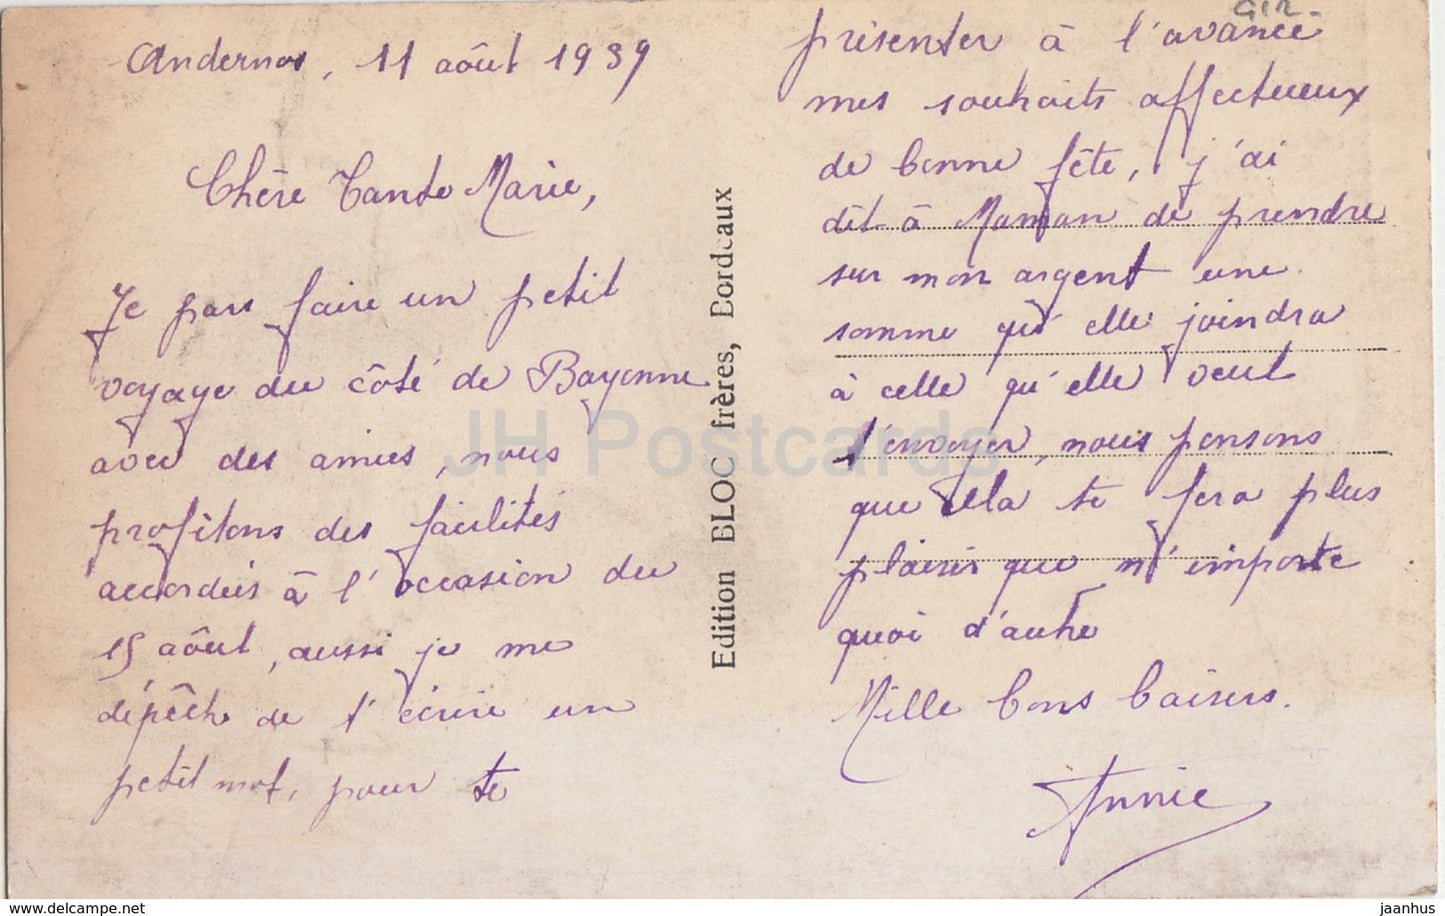 Andernos, 11 aôut 1939
Chère Tante Marie,
Je pars faire un petit
voyage du côté de Bayonne
avec des amies, nous
profitons des facilités
accordées à l'occasion du
15 aôut, aussi je me
dépêche de t'écrire un
petit mot, pour te
Edition BLOC frères, Bordeaux
GIR-
présenter à l'avance
mes souhaits affectueux
de bonne fête, j'ai
dit à Maman de prendre
sur mon argent une
somme qu'elle joindra
à celle qu'elle veut
t'envoyer, nous pensons
que cela te fera plus
plaisir que n'importe
quoi d'autre
Mille bons baisers.
Annie
JH Postcards
www.delcampe.net
jaanhus